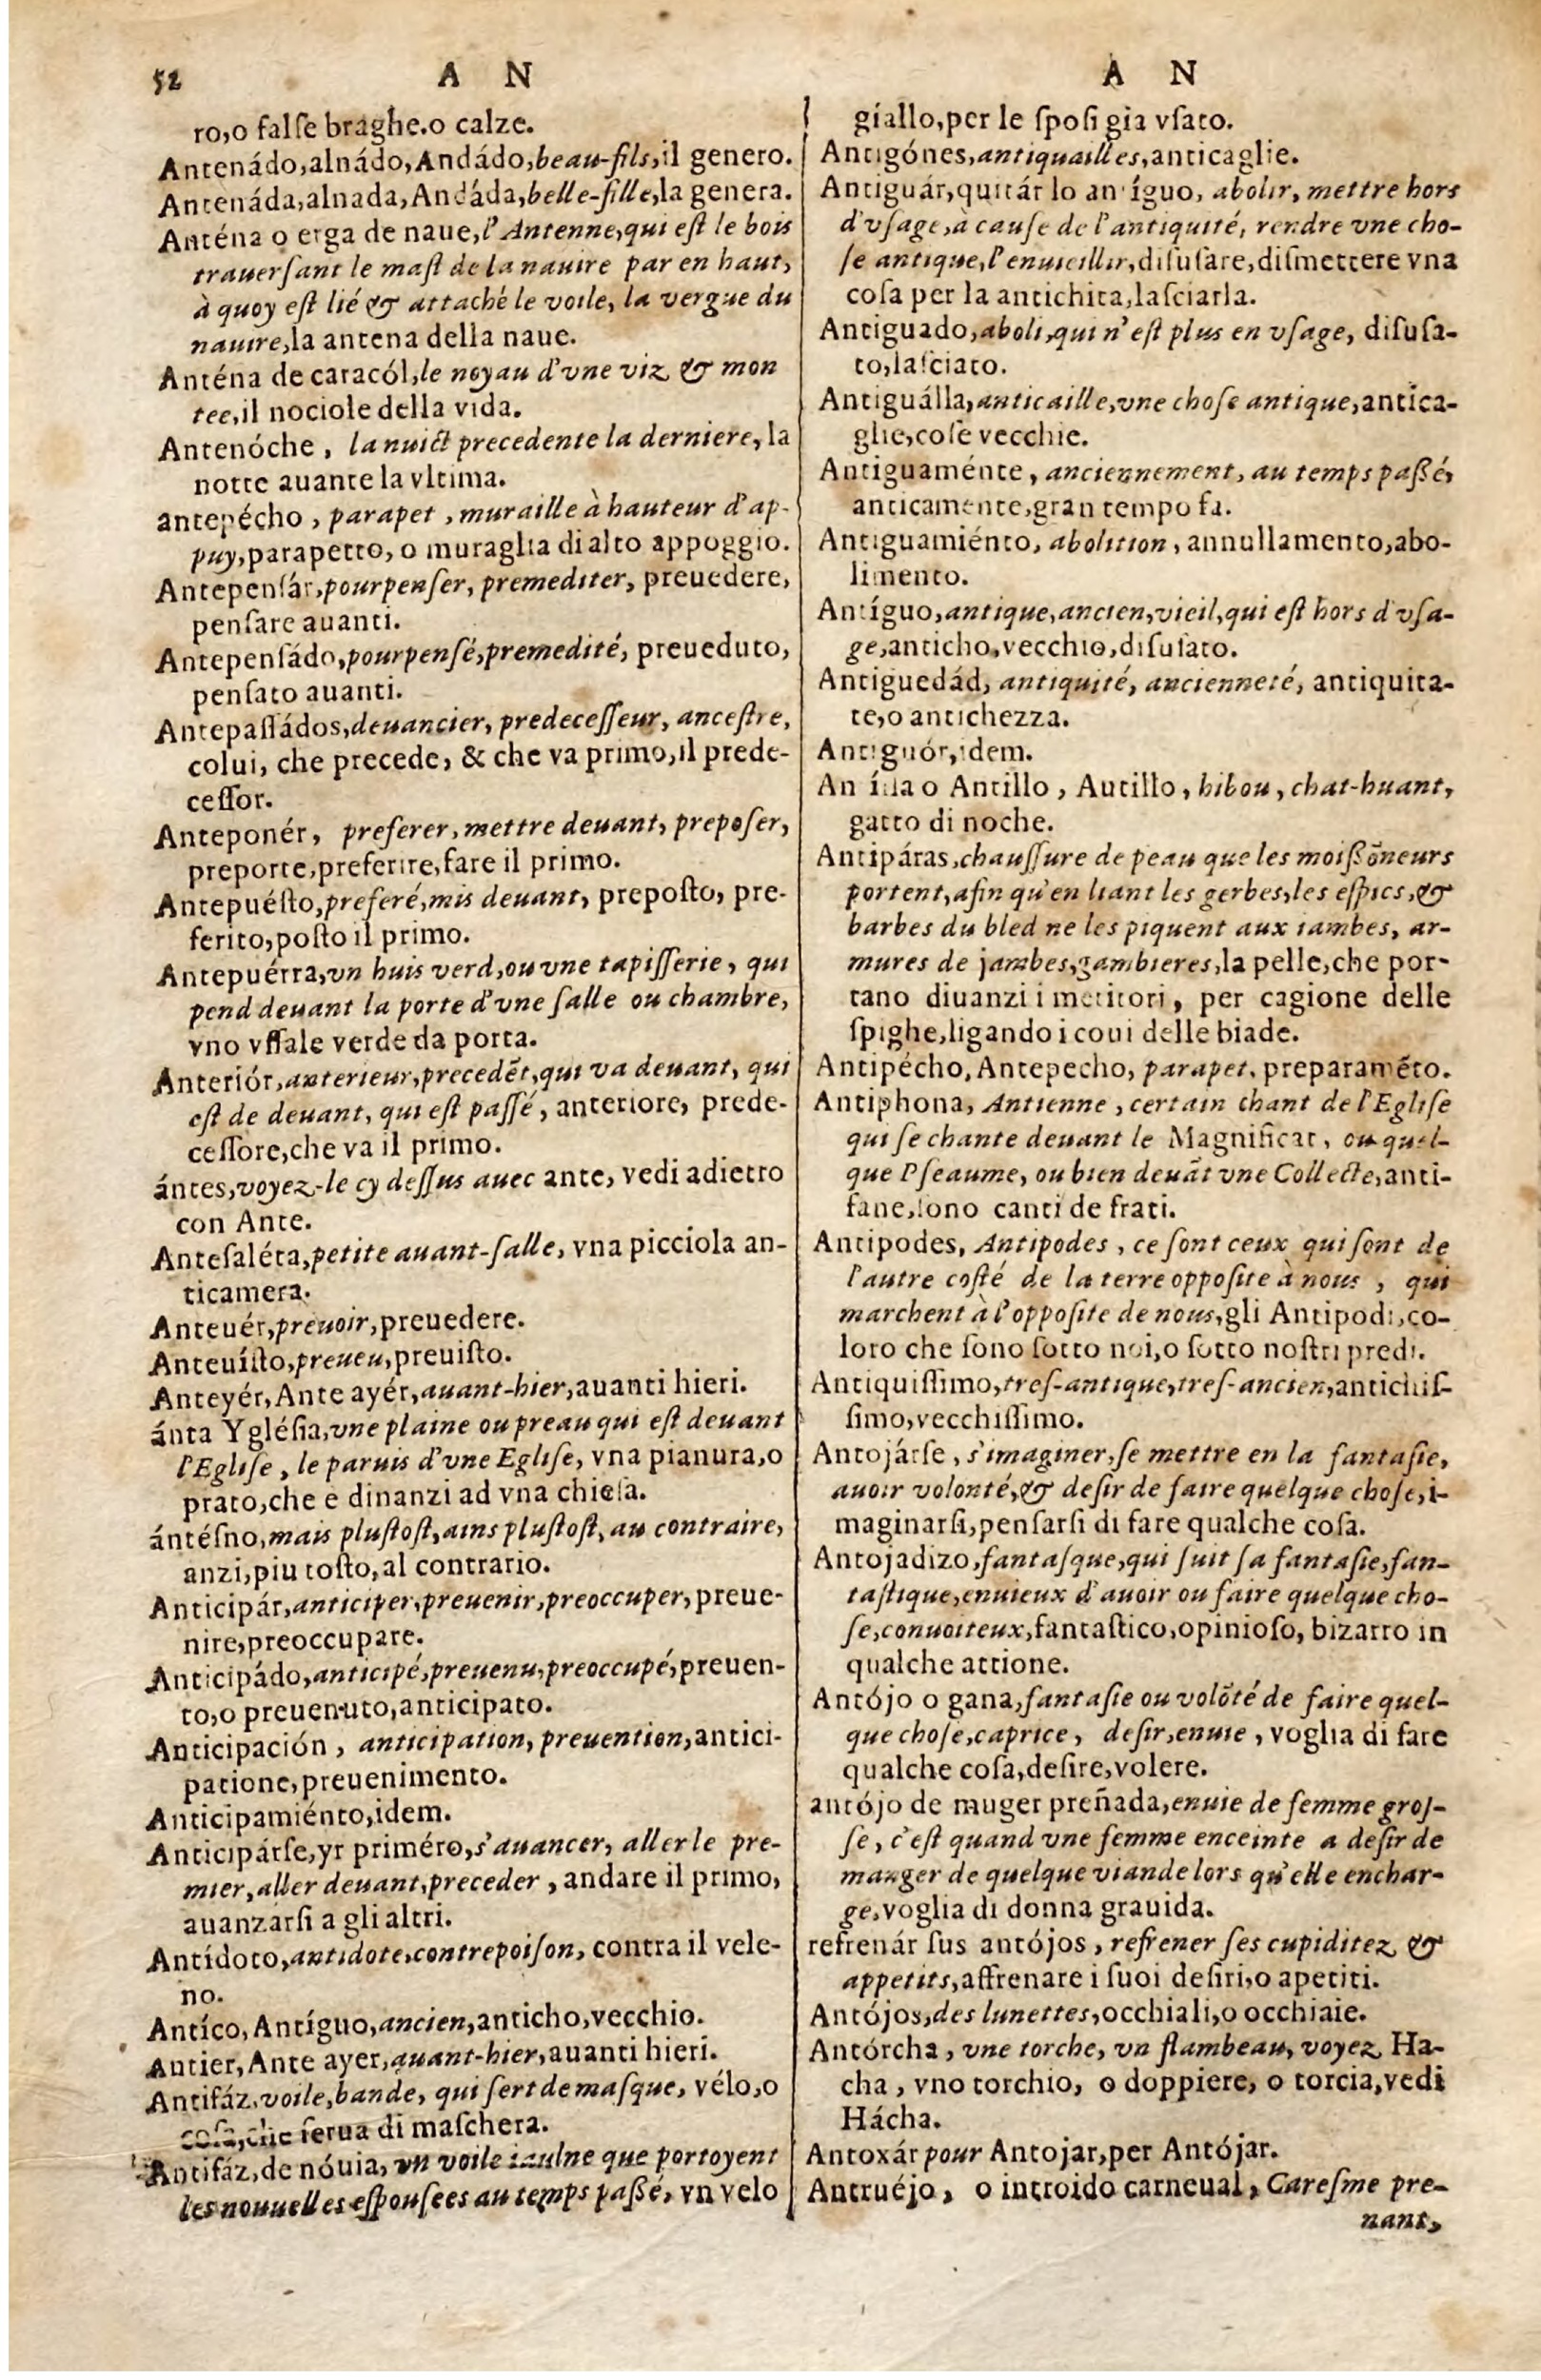 52 A N
ro,o falſe braghe.o calze.
Antenádo,alnádo,Andádo,beau-fils,il genero.
Antenáda,alnada,Andáda,belle-fille,la genera.
Anténa o erga de naue,l'Antenne,qui eſt le bois
trauerſant le maſt de la nauire par en haut,
à quoy eſt lié & attaché le voile, la vergue du
nauire,la antena della naue.
Anténa de caracól,le noyau d'vne viz & mon
tee,il nociole della vida.
Antenóche, la nuict precedente la derniere, la
notte auante la vltima.
antepécho, parapet, muraille à hauteur d'ap-
puy,parapetto, o muraglia di alto appoggio.
Antepenſár,pourpenſer, premediter, preuedere,
penſare auanti.
Antepenſádo,pourpenſé,premedité, preueduto,
penſato auanti.
Antepaſſádos,deuancier, predeceſſeur, anceſtre,
colui, che precede, & che va primo,il prede-
ceſſor.
Anteponér, preferer,mettre deuant, prepoſer,
preporre,preferire,fare il primo.
Antepuéſto,preferé,mis deuant, prepoſto, pre-
ferito,poſto il primo.
Antepuérta,vn huis verd,ou vne tapiſſerie, qui
pend deuant la porte d'vne ſalle ou chambre,
vno vſſale verde da porta.
Anteriór,anterieur,precedẽt,qui va deuant, qui
eſt de deuant, qui eſt paſſé, anteriore, prede-
ceſſore,che va il primo.
ántes,voyez-le cy deſſus auec ante, vedi adietro
con Ante.
Anteſaléta,petite auant-ſalle, vna picciola an-
ticamera.
Anteuér,preuoir,preuedere.
Anteuíſto,preueu,preuiſto.
Anteyér, Ante ayér,auant-hier,auanti hieri.
ánta Ygléſia,vne plaine ou preau qui eſt deuant
l'Egliſe, le paruis d'vne Egliſe, vna pianura,o
prato,che e dinanzi ad vna chieſa.
ántéſno,mais pluſtoſt,ains pluſtoſt, au contraire,
anzi,piu toſto,al contrario.
Anticipár,anticiper,preuenir,preoccuper, preue-
nire,preoccupare.
Anticipádo,anticipé,preuenu,preoccupé,preuen-
to,o preuenuto,anticipato.
Anticipación, anticipation, preuention,antici-
patione,preuenimento.
Anticipamiénto,idem.
Anticipárſe,yr priméro,s'auancer, aller le pre-
mier,aller deuant,preceder, andare il primo,
auanzarſi a gli altri.
Antídoto,antidote,contrepoiſon, contra il vele-
no.
Antíco, Antíguo,ancien,anticho,vecchio.
Antier, Ante ayer,auant-hier,auanti hieri.
Antifáz,voile,bande, qui ſert de maſque, vélo,o
coſa,che ſerua di maſchera.
Antifáz,de nóuia, vn voile iaulne que portoyent
les nouuelles eſpouſees au temps paßé, vn velo
A N
giallo,per le ſpoſi gia vſato.
Antigónes,antiquailles,anticaglie.
Antiguár,quitár lo an íguo, abolir, mettre hors
d'vſage,à cauſe de l'antiquité, rendre vne cho-
ſe antique,l'enuieillir,diſuſare,diſmettere vna
coſa per la antichita,laſciarla.
Antiguado,aboli,qui n'eſt plus en vſage, diſuſa-
to,laſciato.
Antiguálla,anticaille,vne choſe antique,antica-
glie,coſe vecchie.
Antiguaménte, anciennement, au temps paßé,
anticamente,gran tempo fa.
Antiguamiénto, abolition, annullamento,abo-
limento.
Antíguo,antique,ancien,vieil,qui eſt hors d'vſa-
ge,anticho,vecchio,diſuſato.
Antiguedád, antiquité, ancienneté, antiquita-
te,o antichezza.
Antiguór,idem.
An ílla o Antillo, Autillo, hibou, chat-huant,
gatto di noche.
Antipáras,chauſſure de peau que les moißõneurs
portent,afin qu'en liant les gerbes,les eſpics,&
barbes du bled ne les piquent aux iambes, ar-
mures de jambes,gambieres,la pelle,che por-
tano diuanzi i metitori, per cagione delle
ſpighe,ligando i coui delle biade.
Antipécho, Antepecho, parapet, preparamẽto.
Antiphona, Antienne, certain chant de l'Egliſe
qui ſe chante deuant le Magnificat, ou quel-
que Pſeaume, ou bien deuãt vne Collecte,anti-
fane,ſono canti de frati.
Antipodes, Antipodes, ce ſont ceux qui ſont de
l'autre coſté de la terre oppoſite à nous, qui
marchent à l'oppoſite de nous,gli Antipodi,co-
loro che ſono ſotto noi,o ſotto noſtri predi.
Antiquiſſimo,treſ-antique,treſ-ancien,antichiſ-
ſimo,vecchiſſimo.
Antojárſe, s'imaginer,ſe mettre en la fantaſie,
auoir volonté,& deſir de faire quelque choſe,i-
maginarſi,penſarſi di fare qualche coſa.
Antojadizo,fantaſque,qui ſuit ſa fantaſie,fan-
taſtique,enuieux d'auoir ou faire quelque cho-
ſe,conuoiteux,fantaſtico,opinioſo, bizarro in
qualche attione.
Antójo o gana,fantaſie ou volõté de faire quel-
que choſe,caprice, deſir,enuie, voglia di fare
qualche coſa,deſire,volere.
antójo de muger preñada,enuie de femme groſ-
ſe, c'eſt quand vne femme enceinte a deſir de
manger de quelque viande lors qu'elle enchar-
ge,voglia di donna grauida.
refrenár ſus antójos, refrener ſes cupiditez &
appetits,affrenare i ſuoi deſiri,o apetiti.
Antójos,des lunettes,occhiali,o occhiaie.
Antórcha, vne torche, vn flambeau, voyez Ha-
cha, vno torchio, o doppiere, o torcia,vedi
Hácha.
Antoxár pour Antojar,per Antójar.
Antruéjo, o introido carneual, Careſme pre-
nant,